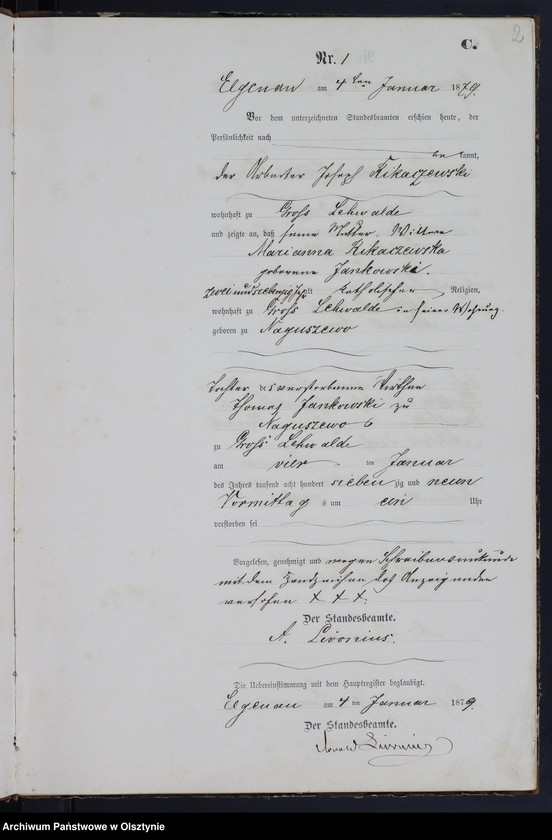 2
C.
Nr. 1
Elgenau am 4 ten Januar 1879.
Vor dem unterzeichneten Standesbeamten erschien heute, der
Persönlichkeit nach
be kannt,
der Arbeiter Joseph Kikaczewski
wohnhaft zu Groß Lehwalde
und zeigte an, daß seine Mutter, Wittwe
Marianna Kikaczewska
geborene Jankowski.
zweiundsiebenzig Jahr alt katholischer Religion,
wohnhaft zu Groß Lehwalde in seiner Wohnung.
geboren zu Naguszewo
Tochter des verstorbenen Wirthen
Thomas Jankowski zu
Naguszewo
zu Groß Lehwalde
am vier ten Januar
des Jahres tausend acht hundert sieben zig und neun
Vormittag s um ein Uhr
verstorben sei
Vorgelesen, genehmigt und wegen Schreibensunkunde
mit dem Handzeichen des Anzeigenden
versehen + + +
Der Standesbeamte.
A. Livonius.
Die Uebereinstimmung mit dem Hauptregister beglaubigt.
Elgenau am 4 ten Januar 1879.
Der Standesbeamte.
Livonius
Archiwum Państwowe w Olsztynie